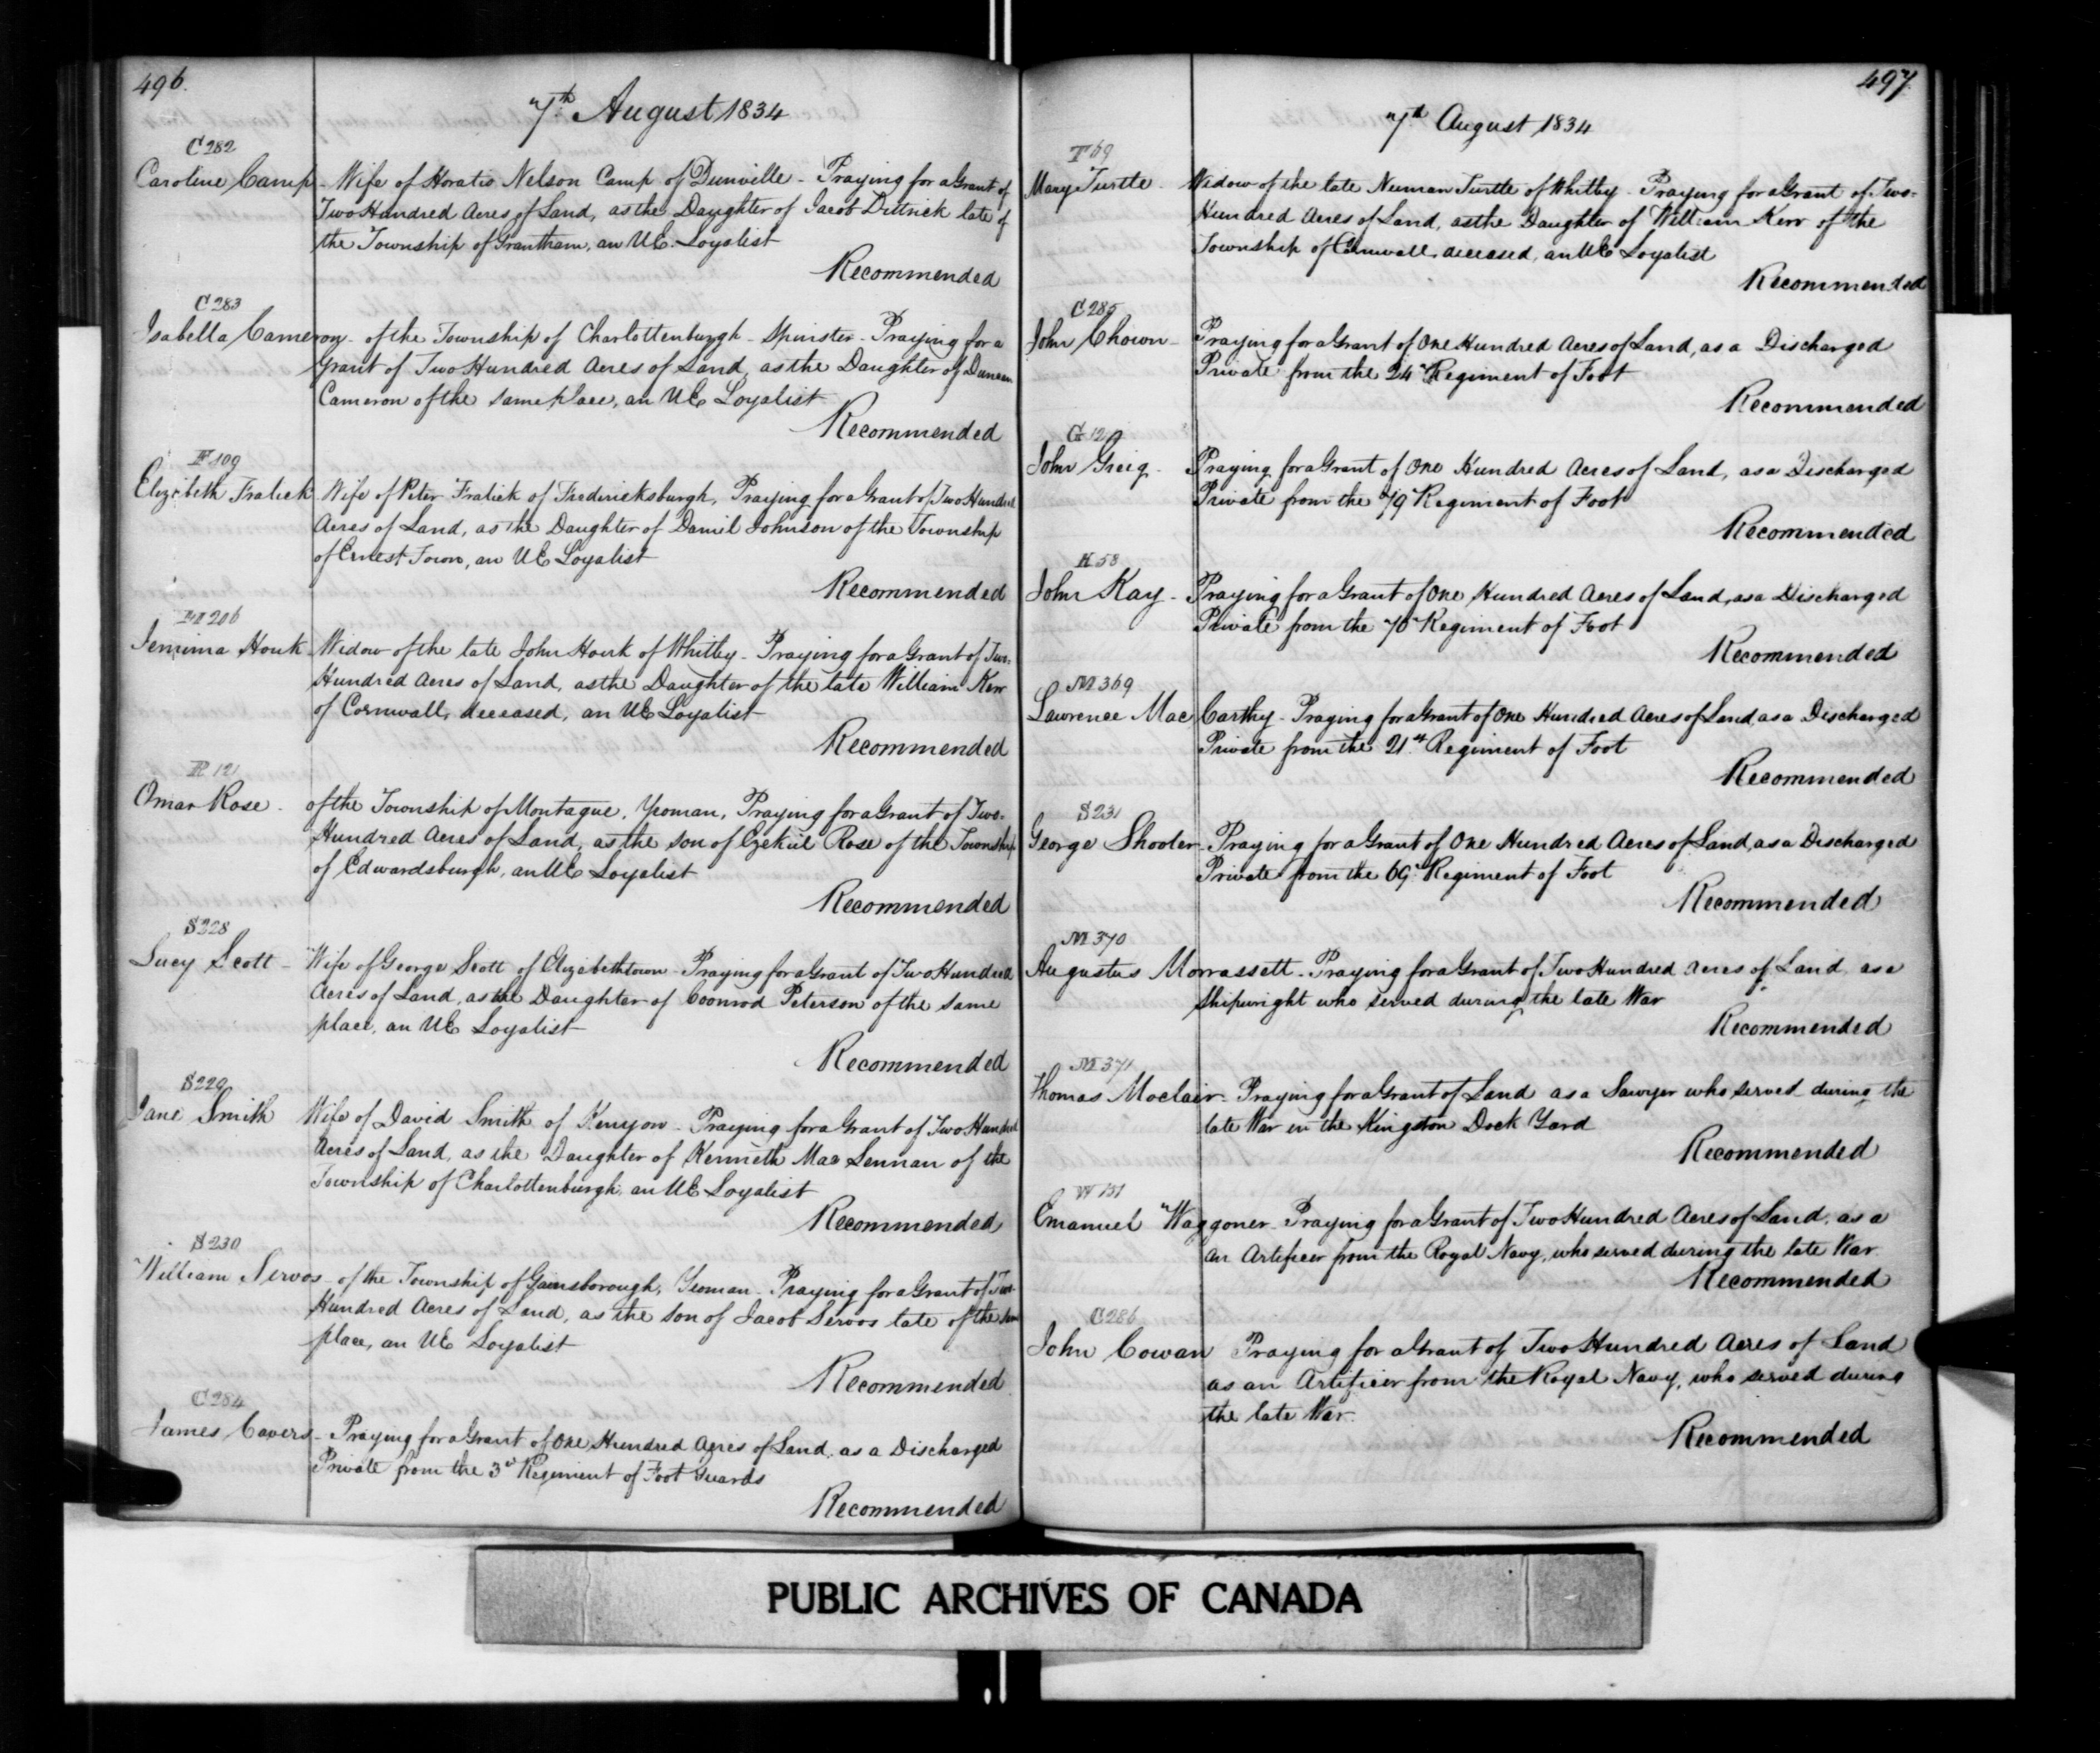 496.
7th August 1834
C 282
Caroline Camp - Wife of Horatio Nelson Camp of Dunville - Praying for a Grant of
Two Hundred Acres of Land, as the Daughter of Jacob Dittrick late of
the Township of Grantham, an UE. Loyalist
Recommended
C 283
Isabella Cameron - of the Township of Charlottenburgh - Spinster - Praying for a
Grant of Two Hundred Acres of Land, as the Daughter of Duncan
Cameron of the same place, an UE Loyalist
Recommended
F 109
Elizabeth Fralick Wife of Peter Fralick of Fredericksburgh, Praying for a Grant of Two Hundred
Acres of Land, as the Daughter of Daniel Johnson of the Township
of Ernest Town, an UE Loyalist
Recommended
H 206
Jemima Houk Widow of the late John Houk of Whitby - Praying for a Grant of Two-
Hundred Acres of Land, as the Daughter of the late William Kerr
of Cornwall, deceased, an UE Loyalist
Recommended
R 121
Omar Rose - of the Township of Montague, Yeoman, Praying for a Grant of Two-
Hundred Acres of Land, as the son of Ezekiel Rose of the Township
of Edwardsburgh, an UE Loyalist
Recommended
S 228
Lucy Scott - Wife of George Scott of Elizabethtown - Praying for a Grant of Two Hundred
Acres of Land, as the Daughter of Coonrod Peterson of the same
place, an UE Loyalist
Recommended
S 229
Jane Smith Wife of David Smith of Kenyon - Praying for a Grant of Two Hundred
Acres of Land, as the Daughter of Kenneth Mac Lennan of the
Township of Charlottenburgh, an UE Loyalist
Recommended
S 230
William Servos - of the Township of Gainsborough, Yeoman - Praying for a Grant of Two-
Hundred Acres of Land, as the son of Jacob Servos late of the same
place, an UE Loyalist
Recommended
C 284
James Cavers - Praying for a Grant of One Hundred Acres of Land, as a Discharged
Private from the 3d Regiment of Foot Guards
Recommended
497.
7th August 1834
T 69
Mary Turtle - Widow of the late Numan Turtle of Whitby - Praying for a Grant of Two-
Hundred Acres of Land, as the Daughter of William Kerr of the
Township of Cornwall, deceased, an UE Loyalist
Recommended
C 285
John Chown - Praying for a Grant of One Hundred Acres of Land, as a Discharged
Private from the 24 Regiment of Foot
Recommended
G 129
John Greig - Praying for a Grant of One Hundred Acres of Land, as a Discharged
Private from the 79 Regiment of Foot
Recommended
K 58
John Kay - Praying for a Grant of One Hundred Acres of Land, as a Discharged
Private from the 70 Regiment of Foot
Recommended
M 369
Lawrence Mac Carthy - Praying for a Grant of One Hundred Acres of Land, as a Discharged
Private from the 21st Regiment of Foot
Recommended
S 231
George Shooter - Praying for a Grant of One Hundred Acres of Land, as a Discharged
Private from the 69 Regiment of Foot
Recommended
M 370
Augustus Morrassett - Praying for a Grant of Two Hundred Acres of Land, as a
Shipwright who served during the late War
Recommended
M 371
Thomas Moclair - Praying for a Grant of Land as a Sawyer who served during the
late War in the Kingston Dock Yard
Recommended
W 151
Emanuel Waggoner - Praying for a Grant of Two Hundred Acres of Land, as a
An Artificer from the Royal Navy, who served during the late War.
Recommended
C 286
John Cowan Praying for a Grant of Two Hundred Acres of Land
as an Artificer from the Royal Navy, who served during
the late War.
Recommended
PUBLIC ARCHIVES OF CANADA